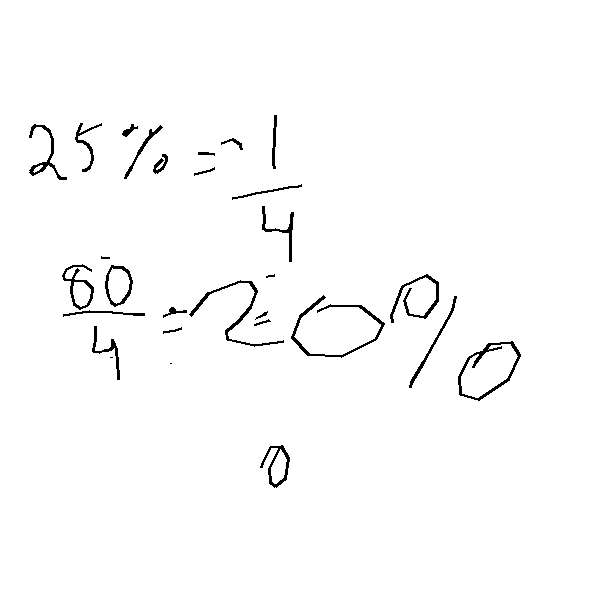 25% = 1/4
80/4 = 20%
0